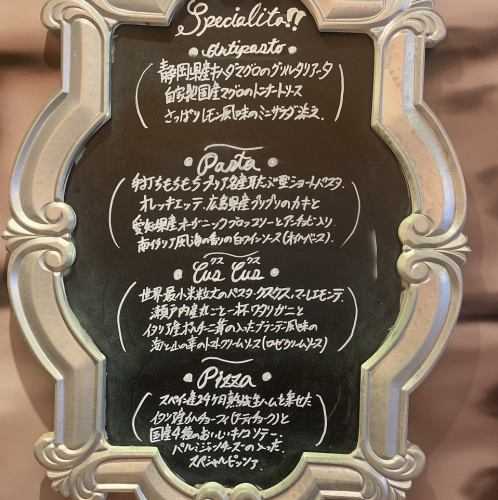 Specialita!!
Antipasto
静岡県産キハダマグロのグリルタリアータ
自家製国産マグロのトンナートソース
さっぱりレモン風味のミニサラダ添え.
Pasta
手打ちもちもちプーリア名産耳たぶ型ショートパスタ.
オレッキエッテ. 広島県産プリプリのカキと
愛知県産オーガニックブロッコリーとアンチョビ入り
南イタリア風海の香りの白ワインソース(オイルベース).
クス クス
Cus Cus
世界最小米粒大のパスタ・クスクス.マーレエモンテ.
瀬戸内産丸ごと一杯ワタリガニと
イタリア産ポルチーニ茸の入ったブランデー風味の
海と山の幸のトマトクリームソース(ロゼクリームソース)
Pizza
スペイン産24ケ月熟成生ハムを乗せた
イタリア産カルチョーフィ(アーティチョーク)と
国産4種のおいしいキノコソテー.
パルミジャンチーズの入った.
スペシャルピッツァ